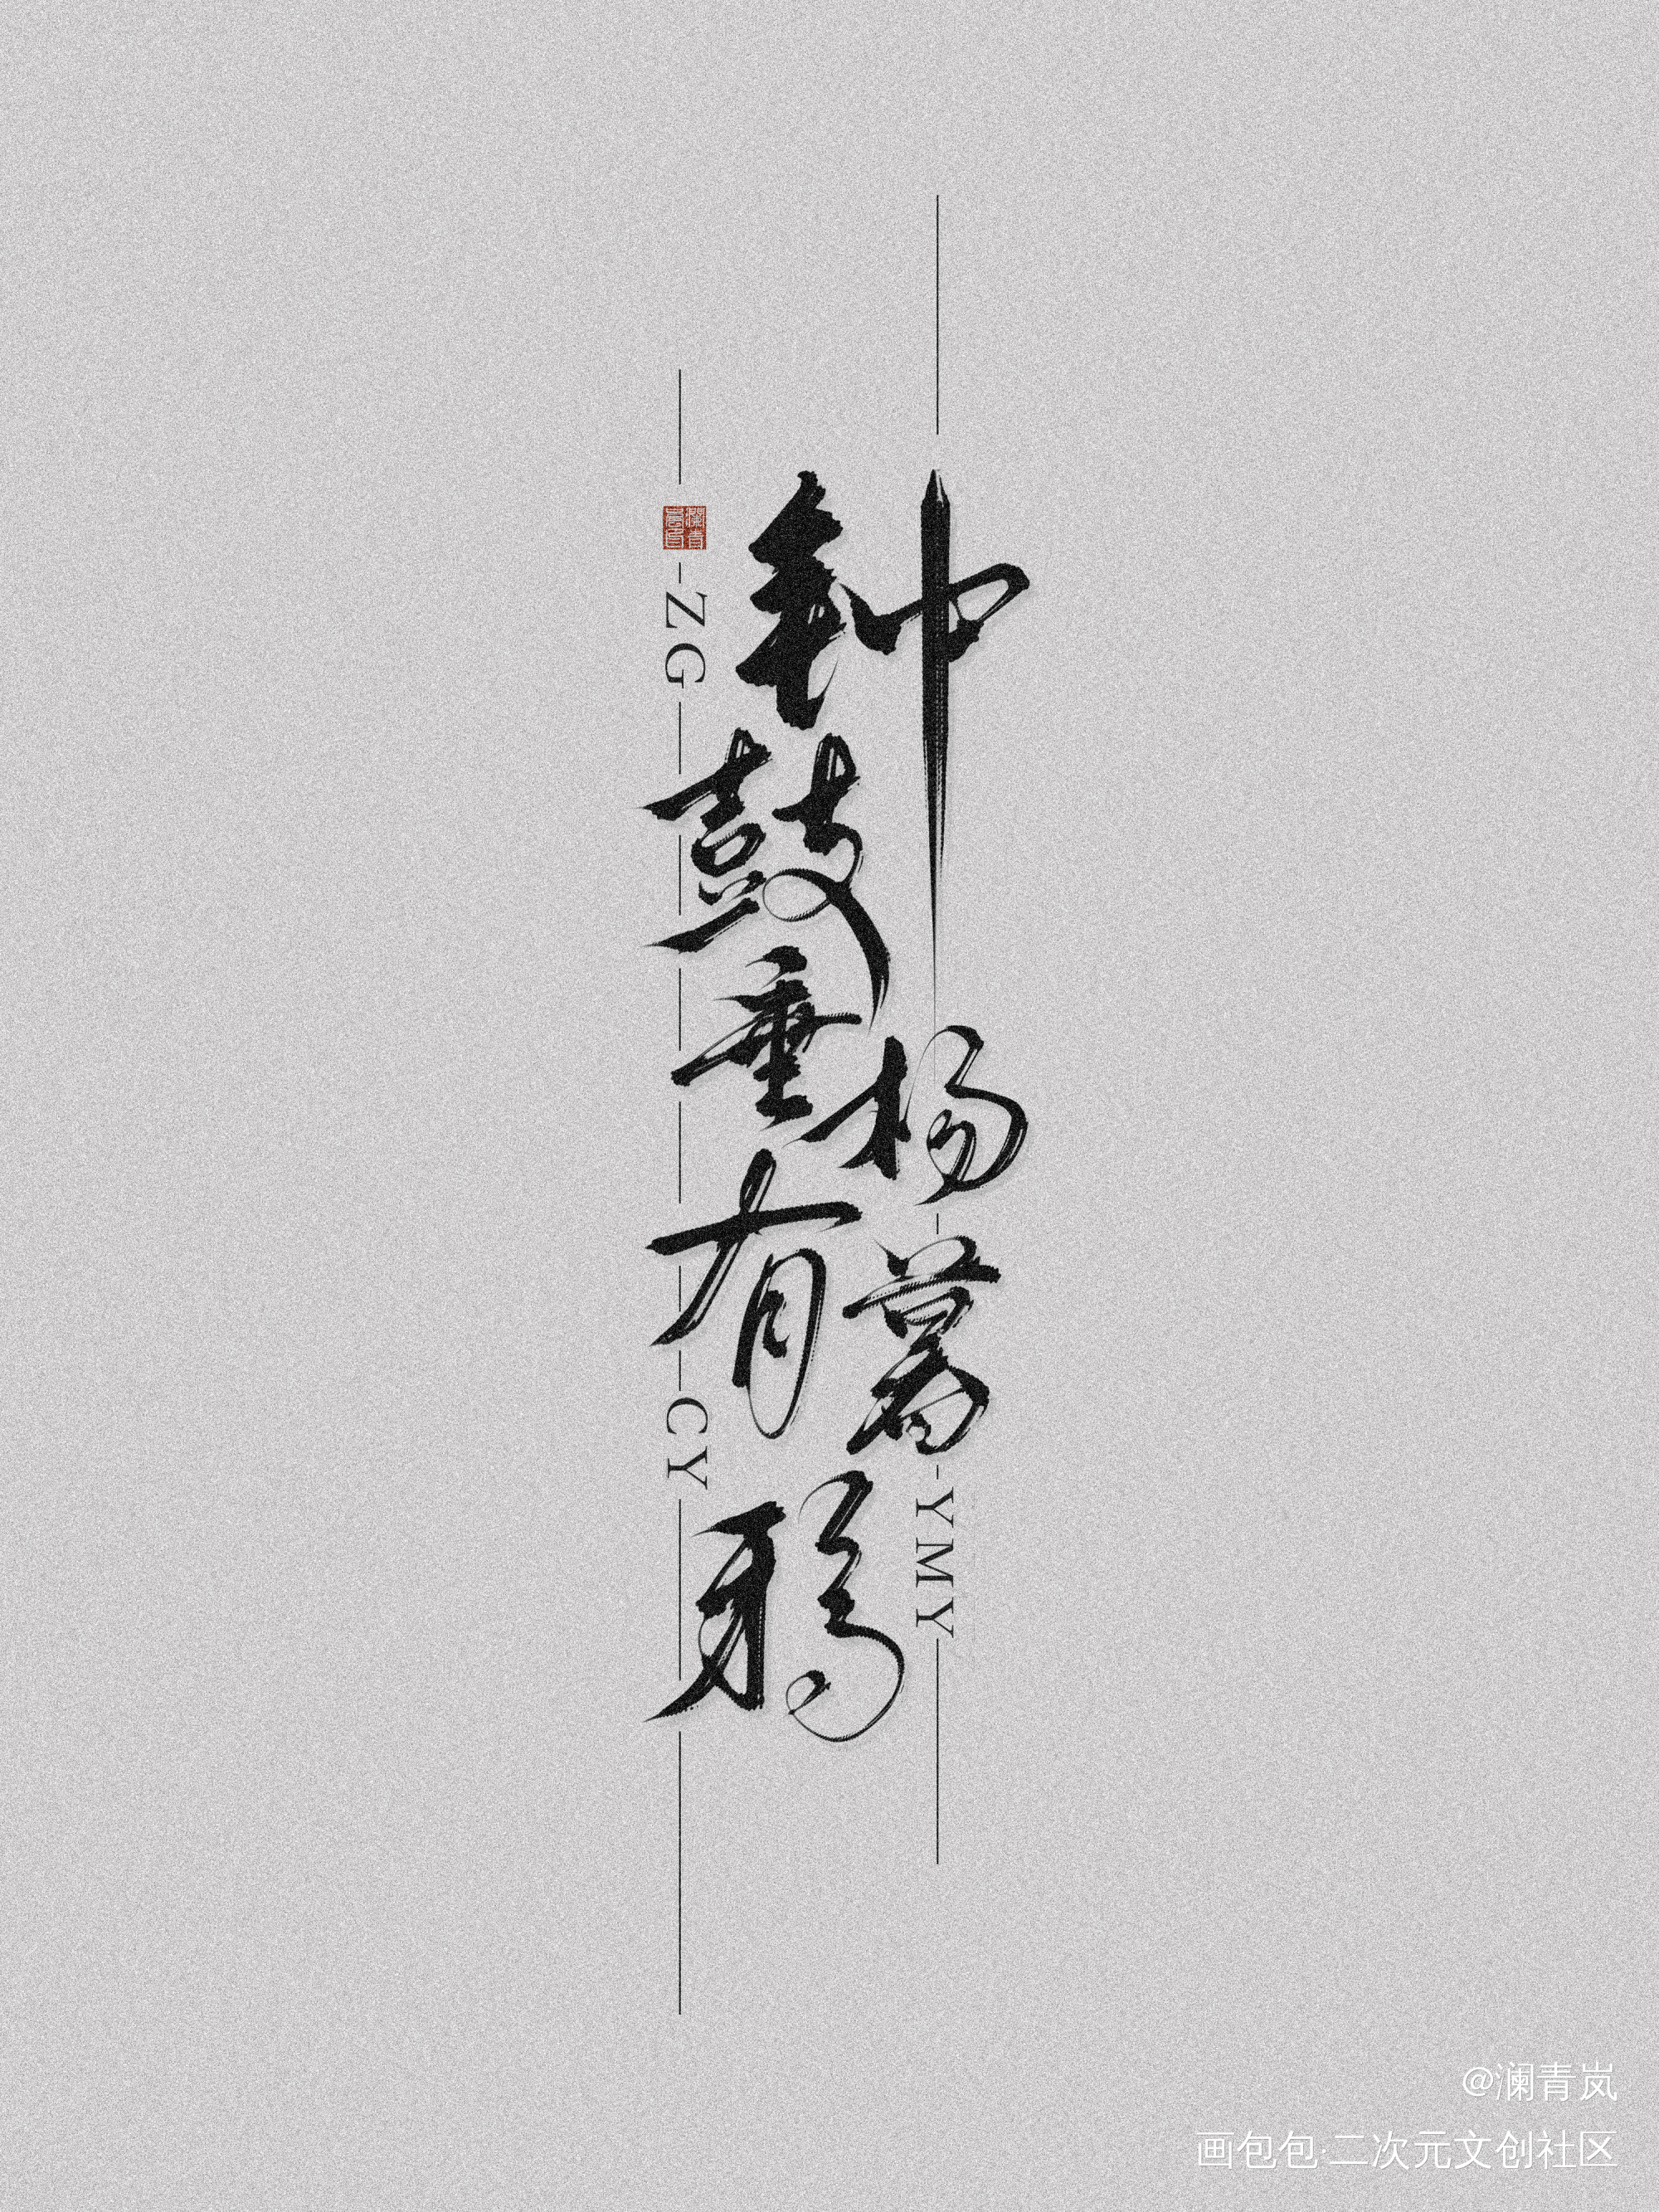 钟鼓垂杨有暮鸦
ZG
CY
YMY
瀾青嵐印
@澜青岚
画包包·二次元文创社区